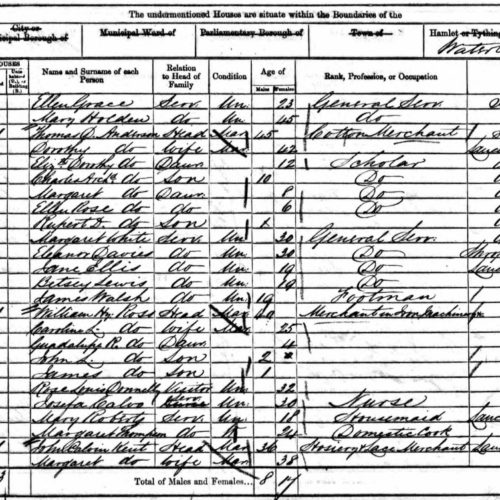 The undermentioned Houses are situate within the Boundaries of the
City or Municipal Borough of Municipal Ward of Parliamentary Borough of Town of Hamlet or Tything
HOUSES Name and Surname of each Person Relation to Head of Family Condition Age of Males Females Rank, Profession, or Occupation
Ellen Grace Serv Un 23 General Serv
Mary Holden do Un 45 do
Thomas D. Anderson Head Mar 45 Cotton Merchant
Dorothy do Wife Mar 42
Elizth Dorothy do Daur 12 Scholar
Charles Archd do Son 10 Do
Margaret do Daur 8 Do
Ellen Rose do do 6 Do
Rupert D. do Son
Margaret White Serv Un 30 General Serv
Eleanor Davies do Un 30 Do
Jane Ellis do Un 19 Do
Betsey Lewis do Un 19 Do
James Walsh do Un 19 Footman
William Hy Ross Head Mar Merchant in Iron
Caroline do Wife Mar 25
Guadalupe R. do Daur 4
John L. do Son 2
James do Son 1
Rose Donnelly Visitor Un 32
Josefa Serv Un 30 Nurse
Mary Roberts Serv Un 18 Housemaid
Margaret Thompson do 24 Domestic Cook
John Calvin Head Mar 36 Hosiery & Lace Merchant
Margaret do Wife Mar 38
Total of Males and Females... 8 17